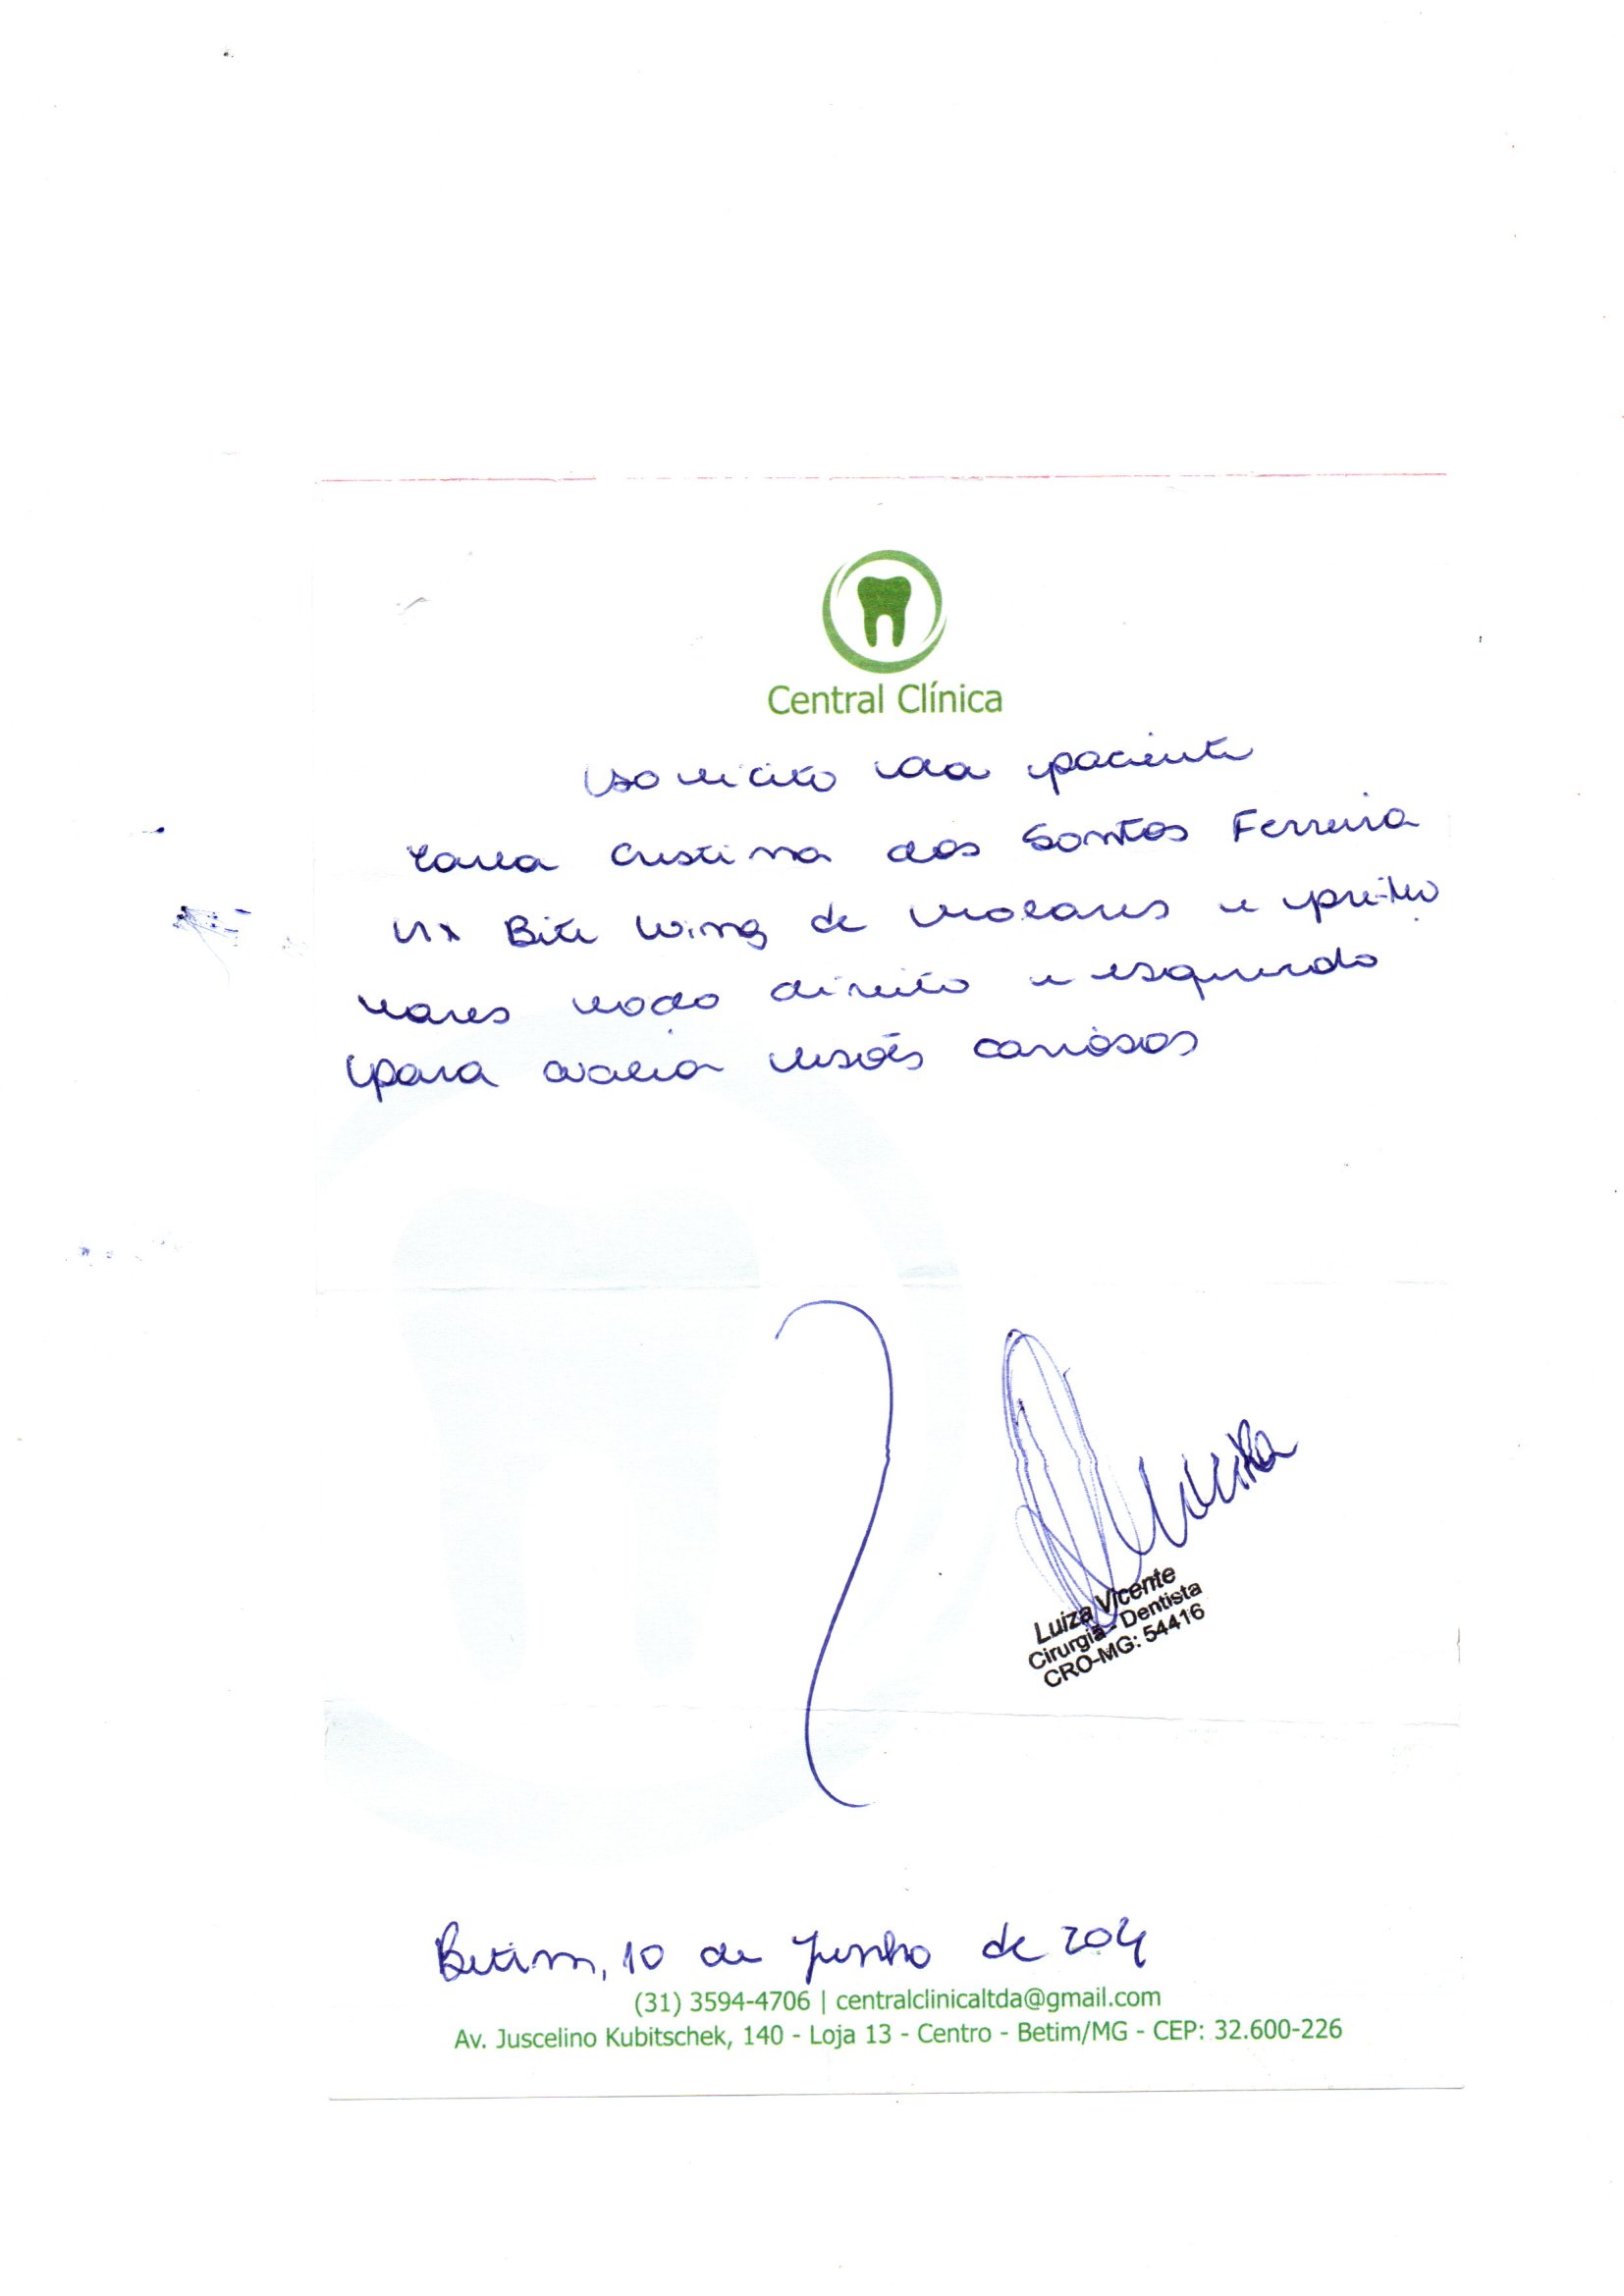 Central Clínica
Solicito da paciente
Carla Cristina dos Santos Ferreira
Rx Bite Wing de molares e pré-mo
lares lado direito e esquerdo
para avaliar lesões cariosas
Luiza Vicente
Cirurgiã - Dentista
CRO-MG: 54416
Betim, 10 de Junho de
(31) 3594-4706 | centralclinicaltda@gmail.com
Av. Juscelino Kubitschek, 140 - Loja 13 - Centro - Betim/MG - CEP: 32.600-226